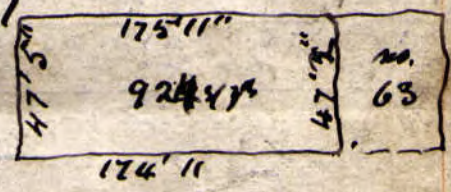 175'11"
47'5"
924 yds
47'3"
no.
63
174' 11